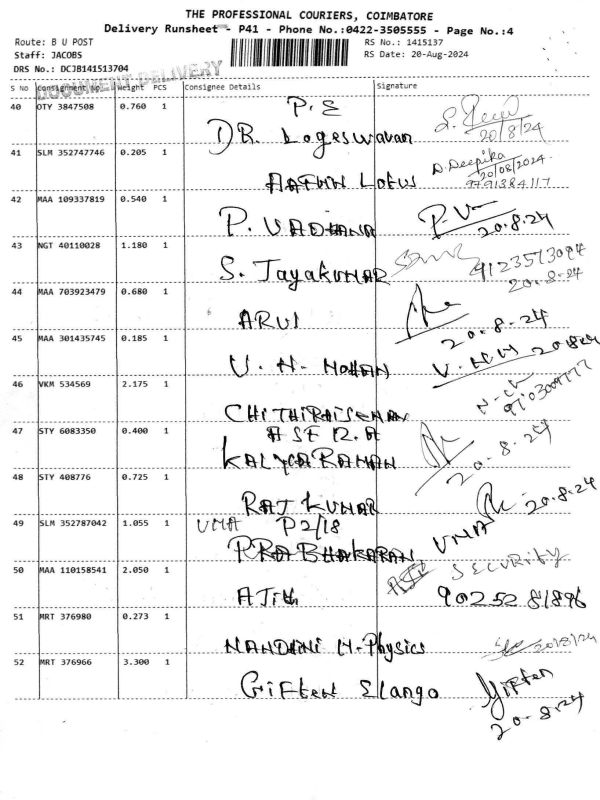 THE PROFESSIONAL COURIERS, COIMBATORE
Delivery Runsheet - P41 - Phone No.:0422-3505555 - Page No.:4
Route: B U POST RS No.: 1415137
Staff: JACOBS RS Date: 20-Aug-2024
DRS No.: DCJB141513704
DOCUMENT DELIVERY
S No Consignment No. Weight PCS Consignee Details Signature
40 OTY 3847508 0.760 1 P.E
DR. Logeswaran 20/8/24
41 SLM 352747746 0.205 1 D. Deepika
20/08/2024
Lotus 9791384117
42 MAA 109337819 0.540 1
P. VADHANA 20.8.24
43 NGT 40110028 1.180 1 9123513094
S. Jayakumar 20.8.24
44 MAA 703923479 0.680 1
ARUL 20.8.24
45 MAA 301435745 0.185 1
V. N. MOHAN
46 VKM 534569 2.175 1
47 STY 6083350 0.400 1
KALYANARAMAN 20.8.24
48 STY 408776 0.725 1
RAJ KUMAR 20.8.24
49 SLM 352787042 1.055 1 UMA P2/18 UMA
PRABHAKARAN
50 MAA 110158541 2.050 1 SECURITY
AJITH 90252 81896
51 MRT 376980 0.273 1
NANDHINI M-Physics 20/8/24
52 MRT 376966 3.300 1
Giften Elango Giften
20.8.24